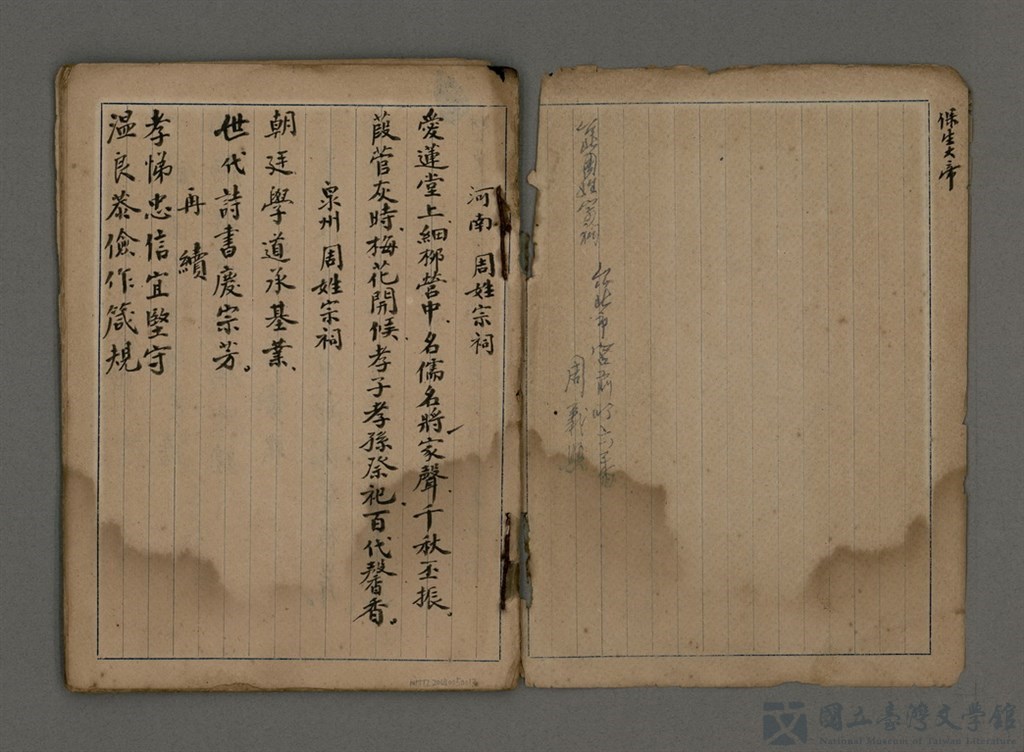 保生大帝
周姓宗祠
台北市宮前町
周義
河南 周姓宗祠
愛蓮堂上細柳營中名儒名將家聲千秋丕振
葭菅灰時梅花開候孝子孝孫祭祀百代馨香。
泉州 周姓宗祠
朝廷學道承基業
世代詩書慶宗芳。
再續
孝悌忠信宜堅守
温良恭儉作箴規
國立臺灣文學館
National Museum of Taiwan Literature